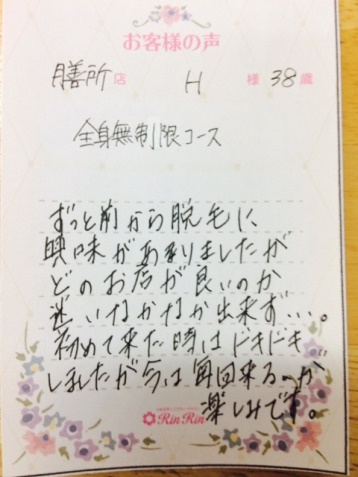 お客様の声
膳所店 H 様 38歳
全身無制限コース
ずっと前から脱毛に
興味がありましたが
どのお店が良いのか
迷いなかなか出来ず…。
初めて来た時はドキドキ
しましたが今は毎回来るのが
楽しみです。
RinRin